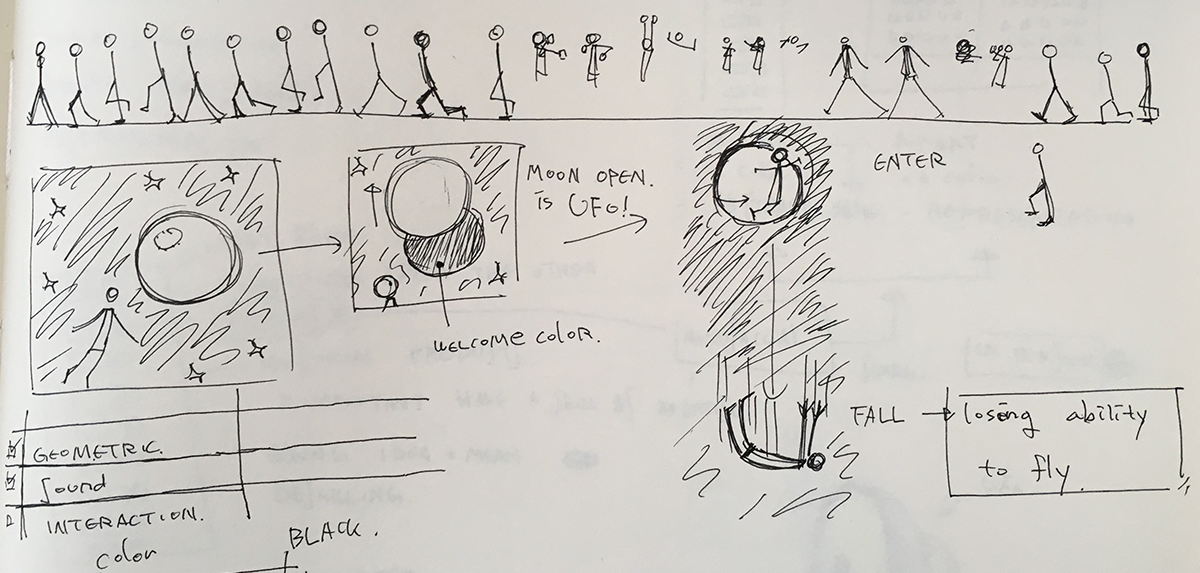 MOON OPEN.
is UFO!
ENTER
WELCOME COLOR.
FALL
losing ability
to fly.
GEOMETRIC.
Sound
INTERACTION.
Color
BLACK.